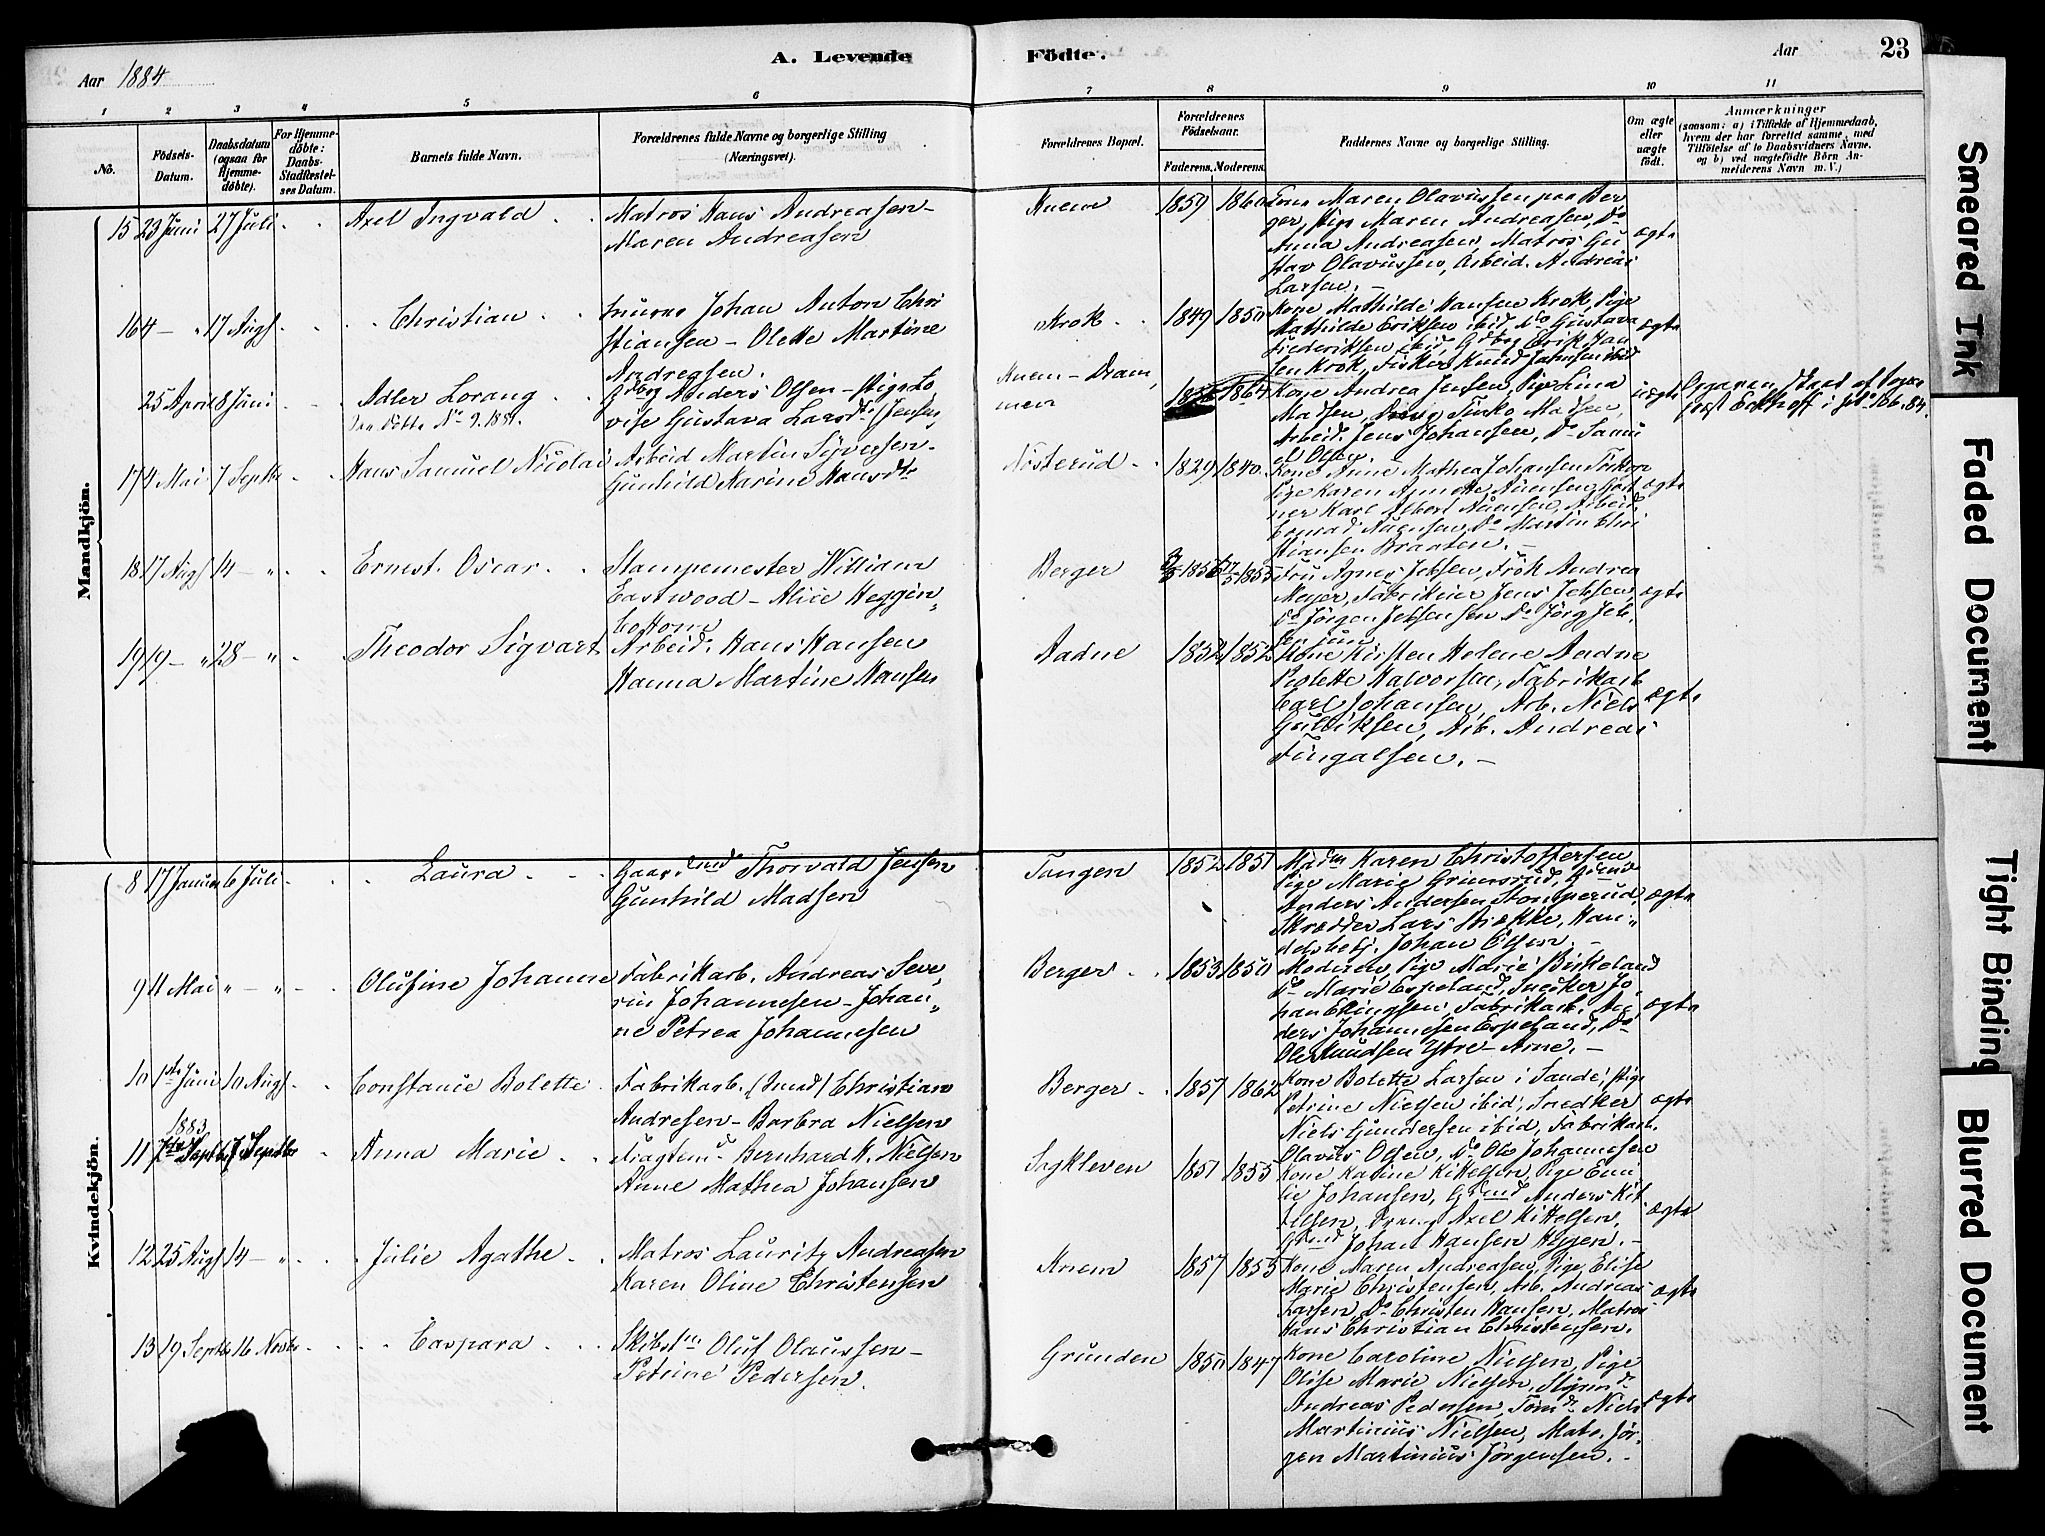 Aar 1884
A. Levende Födte.
Aar
23
1 2 3 4 5 6 7 8 9 10 11
No.
Födsels-Datum.
Daabsdatum (ogsaa for Hjemme-döbte).
For Hjemme-döbte: Daabs-Stadfæstelses Datum.
Barnets fulde Navn.
Forældrenes fulde Navne og borgerlige Stilling (Næringsvei).
Forældrenes Bopæl.
Forældrenes Födselsaar.
Faderens. Moderens.
Faddernes Navne og borgerlige Stilling.
Om ægte eller uægte födt.
Anmærkninger
(saasom: a) i Tilfælde af Hjemmedaab,
hvem der har forrettet samme, med
Tilföielse af to Daabsvidners Navne,
og b) ved uægtefödte Börn Anmelderens Navn m. V.)
Mandkjön.
15 23 Juni 27 Juli
Axel Ingvald
Matros Hans Andreasen-
Maren Andreasen
Knem
1859 1860
Kone Maren Olavussen paa Ber
ger, Pige Maren Andreasen, Do
Anna Andreasen, Matros Gu
stav Olavussen, Arbeid. Andreas
Larsen. -
ægte
16 4 - " 17 Augs
Christian
Johan Anton Chri
stiansen - Olette Martine
Andreasen.
Krok
1849 1850
Kone Mathilde Hansen Krok, Pige
Mathilde Eriksen ibid, Do Gustava
Frederiksen ibid, Gdbrg Erik Han
sen Krok, Fisker Knud Jahnsen ibid
ægte
25 April 8 Juni
Adler Lorang
No 9. 1881.
Gdbrg Anders Olsen - Pige Lo
vise Gustava Larsdtr (Jensen)
Knem - Dram,
men
1864
Kone Andrea Jensen, Pige Lina
Madsen, Dreng Tinko Madsen,
Arbeid. Jens Johansen, Do Samu
el Olsen
uægte
17 4 Mai 7 Septbr
Hans Samuel Nicolai
Arbeid Martin Syversen-
Gunhild Karine Hansdtr
Nösterud
1829 1840
Kone Anne Mathea Johansen
Pige Karen Annette
ner Karl Albert Arbeid.
Do Martin Chri
stiansen Braaten. -
ægte
18 17 Augs 14 - "
Ernest Oscar
Stampemester William
Eastwood - Alice Heggin,
bottom
Berger
1856 1855
Fru Agnes Jebsen, Frök Andrea
Meyer, Fabrikeier Jens Jebsen,
Do Jörgen Jebsen Do Jörg Jeb,
sen jun
ægte
19 19 - " 28 - "
Theodor Sigvart
Arbeid. Hans Hansen
Hanna Martine Hansen
Aadne
1852 1852
Kone Kirsten Helene Aadne
Pige Olette Halvorsen, Fabrikarb
Carl Johansen, Arb. Niels
Gulliksen, Arb. Andreas
Fingalsen. -
ægte
Kvindekjön.
8 17 Januar 6 Juli
Laura
Gaardmd Thorvald Jensen
Gunhild Madsen
Tangen
1852 1851
Madm Karen Christoffersen
Pige Marie Grimsrud, Gdmd
Anders Andersen Stomperud,
Skrædder Lars Brække, Han,
delsbetj. Johan Olsen. -
ægte
9 11 Mai " - " -
Olufine Johanne
Fabrikarb. Andreas Seve,
rin Johannesen - Johan,
ne Petrea Johannesen
Berger
1853 1850
Moderen, Pige Marie Birkeland
Do Marie Espeland, Snedker Jo,
han Ellingsen, Fabrikarb. An,
ders Johannesen Espeland, Do
Ole Knudsen Ytre-Arne. -
ægte
10 1ste Juni 10 Augs
Constance Bolette
Fabrikarb. (Smed) Christian
Andresen - Barbra Nielsen
Berger
1857 1862
Kone Bolette Larsen i Sande, Pige
Petrine Nielsen ibid, Snedker
Niels Gundersen ibid, Fabrikarb.
Olavus Olsen, Do Ole Johannesen
ægte
1883
11 7de Septbr 7 Septbr
Anna Marie
Fragtemd Bernhard H. Nielsen
Anne Mathea Johansen
Sagkleven
1851 1855
Kone Karine Kittelsen, Pige Emi
lie Johansen, Grdmd Anders Kit
telsen, Dreng Axel Kittelsen,
Grdmd Johan Hansen Heggen. -
ægte
12 25 Augs 14 - "
Julie Agathe
Matros Lauritz Andreasen
Karen Oline Christensen
Knem
1857 1855
Kone Maren Andreasen, Pige Elise
Marie Christensen, Arb. Andreas
Larsen, Do Christen Hansen, Matros
Hans Christian Christensen.
ægte
13 19 Septbr 16 Novbr
Caspara
Skibstm Oluf Olaussen-
Petrine Pedersen.
Grunden
1850 1847
Kone Caroline Nielsen, Pige
Olise Marie Nielsen, Styrmd
Andreas Pedersen, Tömd Niels
Martinius Nielsen, Matr. Jör,
gen Martinius Jörgensen. -
ægte
Smeared Ink
Faded Document
Tight Binding
Blurred Document